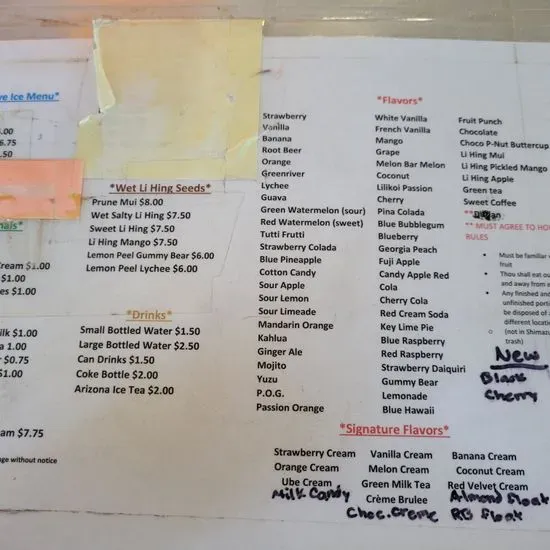 ve Ice Menu*
.00
6.00
.50
nals*
Cream $1.00
$1.00
es $1.00
ilk $1.00
a 1.00
r $0.75
$1.00
am $7.75
ge without notice
*Wet Li Hing Seeds*
Prune Mui $8.00
Wet Salty Li Hing $7.50
Sweet Li Hing $7.50
Li Hing Mango $7.50
Lemon Peel Gummy Bear $6.00
Lemon Peel Lychee $6.00
*Drinks*
Small Bottled Water $1.50
Large Bottled Water $2.50
Can Drinks $1.50
Coke Bottle $2.00
Arizona Ice Tea $2.00
*Flavors*
Strawberry
Vanilla
Banana
Root Beer
Orange
Greenriver
Lychee
Guava
Green Watermelon (sour)
Red Watermelon (sweet)
Tutti Frutti
Strawberry Colada
Blue Pineapple
Cotton Candy
Sour Apple
Sour Lemon
Sour Limeade
Mandarin Orange
Kahlua
Ginger Ale
Mojito
Yuzu
P.O.G.
Passion Orange
White Vanilla
French Vanilla
Mango
Grape
Melon Bar Melon
Coconut
Lilikoi Passion
Cherry
Pina Colada
Blue Bubblegum
Blueberry
Georgia Peach
Fuji Apple
Candy Apple Red
Cola
Cherry Cola
Red Cream Soda
Key Lime Pie
Blue Raspberry
Red Raspberry
Strawberry Daiquiri
Gummy Bear
Lemonade
Blue Hawaii
Fruit Punch
Chocolate
Choco P-Nut Buttercup
Li Hing Mui
Li Hing Pickled Mango
Li Hing Apple
Green tea
Sweet Coffee
** MUST AGREE TO HO
RULES
• Must be familiar
fruit
• Thou shall eat ou
and away from e
• Any finished and
unfinished porti
be disposed of a
different locatio
○ (not in Shimazu
trash)
New
Black
Cherry
*Signature Flavors*
Strawberry Cream
Orange Cream
Ube Cream
Milk Candy
Vanilla Cream
Melon Cream
Green Milk Tea
Crème Brulee
Choc. Creme
Banana Cream
Coconut Cream
Red Velvet Cream
Almond Float
RB Float